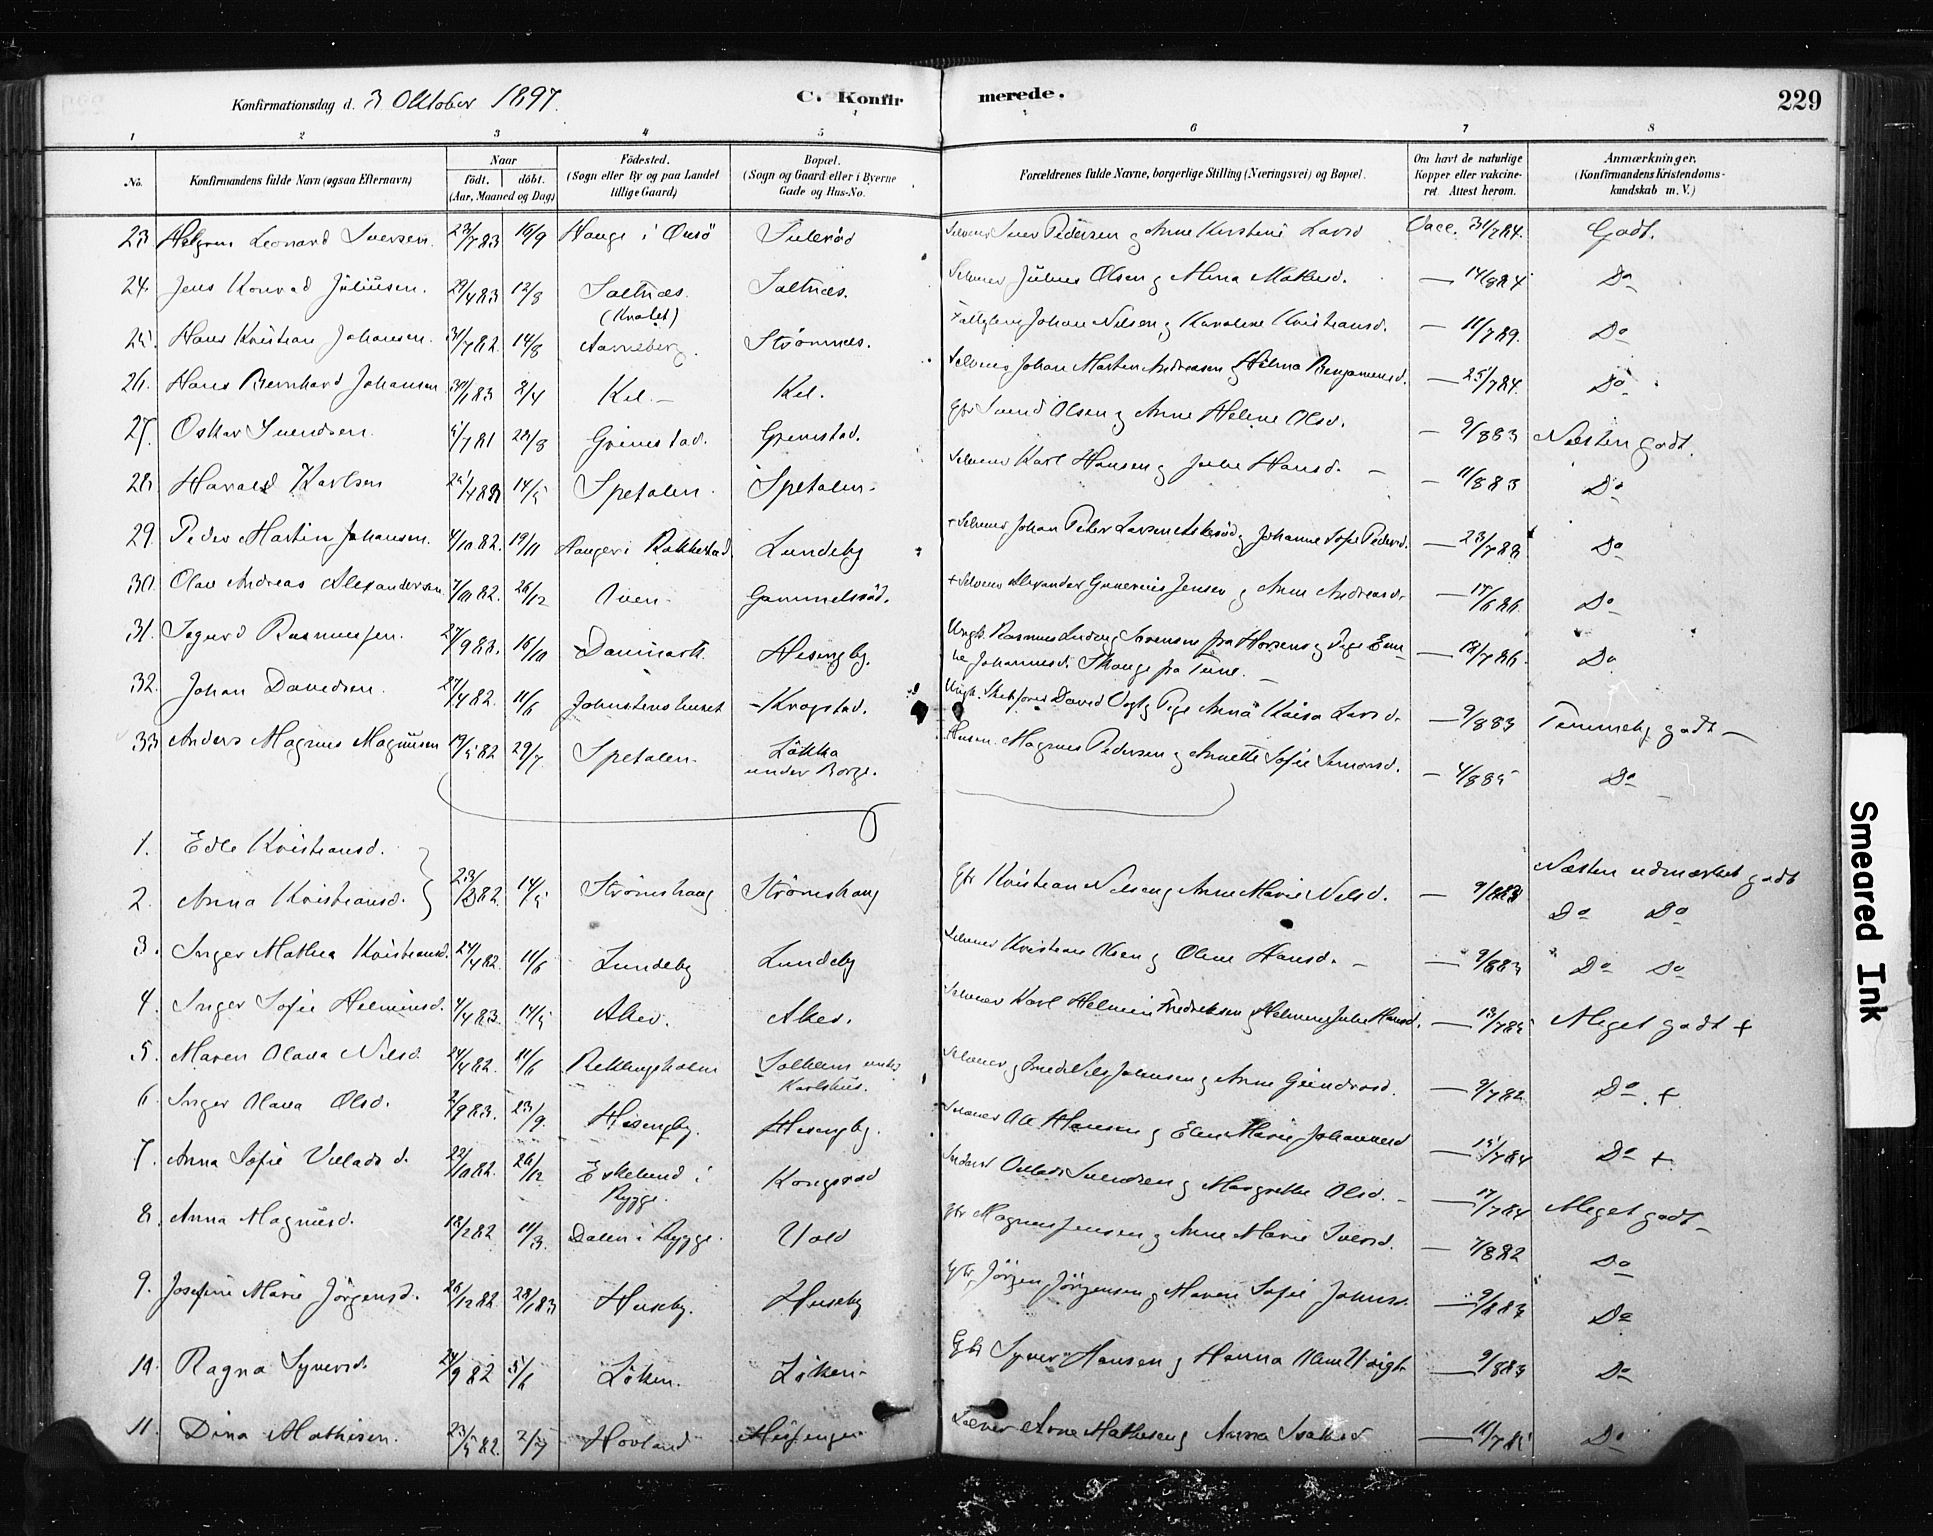 Konfirmationsdag d. 3 Oktober 1897.
C. Konfirmerede.
229
1 2 3 4 5 6 7 8
No. Konfirmandens fulde Navn (ogsaa Efternavn) Naar födt. döbt. (Aar, Maaned og Dag) Födested. (Sogn eller By og paa Landet tillige Gaard) Bopæl. (Sogn og Gaard eller i Byerne Gade og Hus-No. Forældrenes fulde Navne, borgerlige Stilling (Næringsvei) og Bopæl. Om havt de naturlige Kopper eller vakcineret. Attest herom. Anmærkninger. (Konfirmandens Kristendomskundskab m. V.)
23. Leonard Iversen. 23/7 83 16/9 Hauge i Onsö Pedersen & Anne Kirstine Larsd Vacc. 31/7 84. Godt.
24. Jens Konrad Juliusen. 29/4 83 12/8 Saltnæs. (Kvalet) Saltnæs. Selveier Julius Olsen & Mina Mathisd. — 14/8 84 Do
25. Hans Kristian Johansen. 31/7 82. 14/8 Strömnes. Johan Nilsen & Karoline Kristiansd. — 11/7 89. Do
26. Hans Bernhard Johansen 30/1 83 2/4 Kil. — Kil. Selveier Johan Martin Andreasen & Helma Benjaminsd. — 25/7 84. Do
27. Oskar Svendsen. 28/8 Grimstad. Grimstad. Gbr Svend Olsen & Anne Helene Olsd. — 9/8 83 Næsten godt.
28. Harald Karlsen 14/5 Spetalen. Spetalen. Selveier Karl Hansen & Julie Hansd. — — 11/8 83 Do
29. Peder Martin Johansen. 4/10 82. 19/11 Hauger i Rakkestad Lundeby + Selveier Johan Peter Larsen & Johanne Sofie Pedersd. — 23/7 88 Do
30. Olav Andreas Alexandersen 7/10 82. 26/12 Aven. Gammelsröd. + Selveier Alexander Gunerius Jensen & Anne Andreasd. — 17/6 86 Do
31. Sigurd Rasmussen. 27/9 83. 16/10 Danmark. Hesengby. Ungk. Rasmus Ludvig Sørensen fra Horsens & Pige Emme Johannesd. Skauge fra Tune. — — 18/7 86. Do
32. Johan Davidsen. 27/4 82. 11/6 Johnstenshuset — Kragstad. Ungk. David Vogt & Pige Anna Kaisa Larsd. — 9/8 83 Temmelig godt —
33 Anders Magnus Magnusen 19/5 82 29/7 Spetalen. Lökka under Borge. Husm. Magnus Pedersen & Annette Sofie Simonsd. — 4/8 85 Do
1. Edle Kristiansd.
2. Anna Kristiansd. 14/5 Strömshaug Strömshaug Gbr Kristian Nilsen & Anne Marie Nilsd. — Næsten udmærket godt
Do Do
3. Inger Mathea Kristiansd. 24/4 82 11/6 Lundeby Lundeby Selveier Kristian Olsen & Oline Hansd. — — 9/8 83 Do Do
4. Inger Sofie Helminsd. 4/4 83. 14/5 Aker. Aker. Selveier Karl Helmin Fredriksen & Helmine Julie Hansd. — 13/7 85 Meget godt +
5. Maren Olava Nilsd. 24/4 82. 11/6 Reklingsholm Solheim under Karlshus. Selveier & Smed Nils Johnsen & Anne Gundersd. — 9/7 82 Do +
6. Inger Olava Olsd. 2/9 83. 23/9. Hesengby. Hesengby. Selveier Ole Hansen & Elen Marie Johannesd — 15/7 84 Do +
7. Anna Sofie Villads d. 22/10 82. 26/12 Eskelund i Rygge. Kongsrød Svendsen & Margrethe Olsd. — — 17/7 84 Meget godt —
8. Anna Magnusd. 18/2 82 11/3. Dalen i Rygge. Vold Gbr Magnus Jensen & Anne Marie Iversd. — 7/8 82 Do
9. Josefine Marie Jörgensd. 26/12 82 28/1 83 Huseby. Huseby Gbr. Jörgen Jörgensen & Maren Sofie Johnsd. — 9/8 83 Do
10. Ragna Syversd. 24/9 82 Löken. Löken Gbr Syver Hansen & Hanna — 9/8 83 Do
11. Dina Mathisen. 23/5 82. 2/7 Hovland Arne Mathisen & Anna — 11/7 85 Do
Smeared Ink